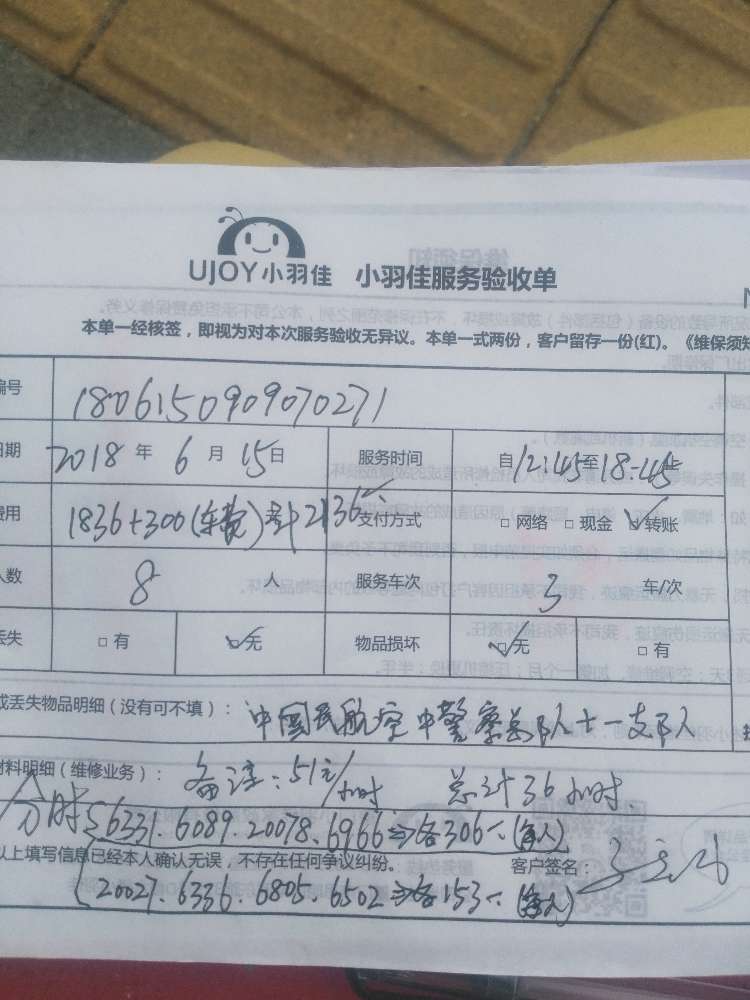 UJOY小羽佳 小羽佳服务验收单
本单一经核签，即视为对本次服务验收无异议。本单一式两份，客户留存一份(红)。《维保须知
编号 1806150909070271
日期 2018年6月15日 服务时间 自12:45至18:45
费用 1836+300(车费)共计2136 支付方式 □网络 □现金 ☑转账
人数 8人 服务车次 3 车/次
丢失 □有 ☑无 物品损坏 ☑无 □有
或丢失物品明细（没有可不填）：中国民航空中警察总队十一支队
材料明细(维修业务)：备注：51元/小时 总计36小时
分时 6331.6089.20078.6966⇒各306 (每人)
以上填写信息已经本人确认无误，不存在任何争议纠纷。 客户签名：
20027.6336.6805.6502⇒各153 (每人)